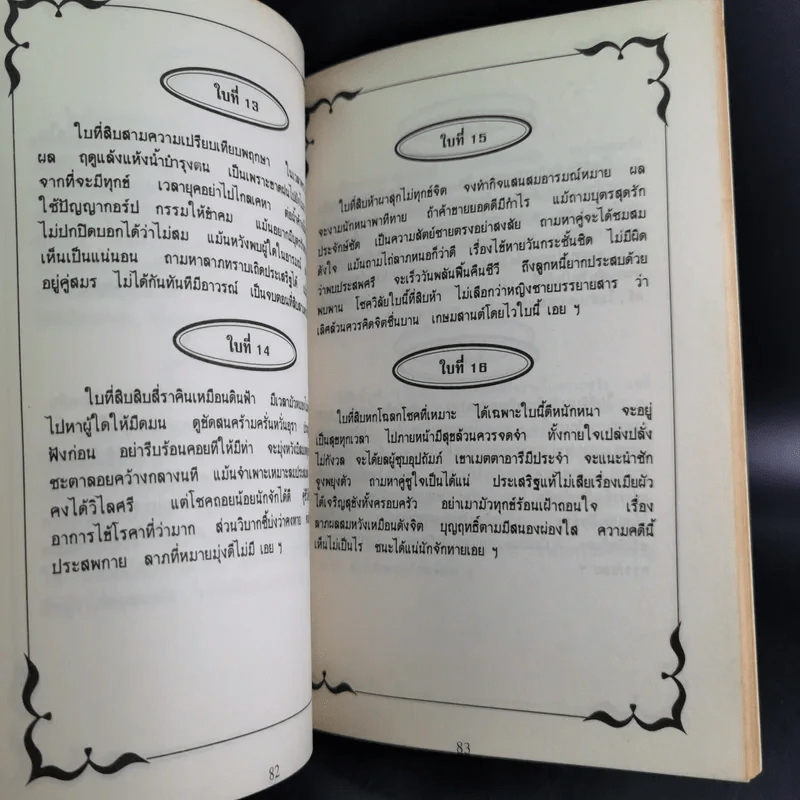 ใบที่ 13
ใบที่สิบสามความเปรียบเทียบพฤกษา
ผล ฤดูแล้งแห้งน้ำบำรุงตน เป็นเพราะขาดฝน
จากที่จะมีทุกข์ เวลายุคอย่าไปไกลเคหา
ใช้ปัญญากอร์ป กรรมให้ช้ำคม แม้นอยากมีบุตร
ไม่ปกปิดบอกได้ว่าไม่สม แม้นหวังพบผู้ใดในอารมณ์
เห็นเป็นแน่นอน ถามหาลาภทราบเถิดประเสริฐได้
อยู่คู่สมร ไม่ได้กันทันทีมีอาวรณ์ เป็นจบตอนที่สิบสาม
ใบที่ 14
ใบที่สิบสิบสี่ราคินเหมือนดินฟ้า มีเวลามัวหมอง
ไปหาผู้ใดให้มืดมน ดูขัดสนคร้ามครั่นหวั่นธุรา
ฟังก่อน อย่ารีบร้อนคอยทีให้มีท่า จะมุ่งหวัง
ชะตาลอยคว้างกลางนที แม้นจำเพาะเหมาะสม
คงได้วิไลศรี แต่โชคถอยน้อยนักจักได้ดี
อาการไข้โรคาที่ว่ามาก ส่วนวิบากชี้บ่งว่าคงหาย
ประสพกาย ลาภที่หมายมุ่งดีไม่มี เอย ฯ
82
ใบที่ 15
ใบที่สิบห้าผาสุกไม่ทุกข์จิต จงทำกิจแสนสมอารมณ์หมาย ผล
จะงามนักหนาพาทีทาย ถ้าค้าขายยอดดีมีกำไร แม้ถามบุตรสุดรัก
ประจักษ์ชัด เป็นความสัตย์ชายตรงอย่าสงสัย ถามหาคู่จะได้ชมสม
ดังใจ แม้นถามไถ่ลาภหนอก็ว่าดี เรื่องไข้หายวันกระชั้นชิด ไม่มีผิด
ว่าพบประสพศรี จะเร็ววันพลันฟื้นคืนชีวี ถึงลูกหนี้ยากประสมด้วย
พบพาน โชควิลัยใบนี้ที่สิบห้า ไม่เลือกว่าหญิงชายบรรยายสาร ว่า
เลิศล้วนควรคิดจิตชื่นบาน เกษมสานต์โดยไวใบนี้ เอย ฯ
ใบที่ 16
ใบที่สิบหกโฉลกโชคที่เหมาะ ได้เฉพาะใบนี้ดีหนักหนา จะอยู่
เป็นสุขทุกเวลา ไปภายหน้ามีสุขล้วนควรจดจำ ทั้งกายใจเปล่งปลั่ง
ไม่กังวล จะได้ยลผู้ชุบอุปถัมภ์ เขาเมตตาอารีมีประจำ จะแนะนำชัก
จูงพยุงตัว ถามหาคู่ชูใจเป็นได้แน่ ประเสริฐแท้ไม่เสียเรื่องเมียผัว
ได้เจริญสุขังทั้งครอบครัว อย่าเมามัวทุกข์ร้อนเฝ้าถอนใจ เรื่อง
ลาภผลสมหวังเหมือนดังจิต บุญฤทธิ์ตามมีสนองผ่องใส ความคดีนี้
เห็นไม่เป็นไร ชนะได้แน่นักจักทายเอย ฯ
83